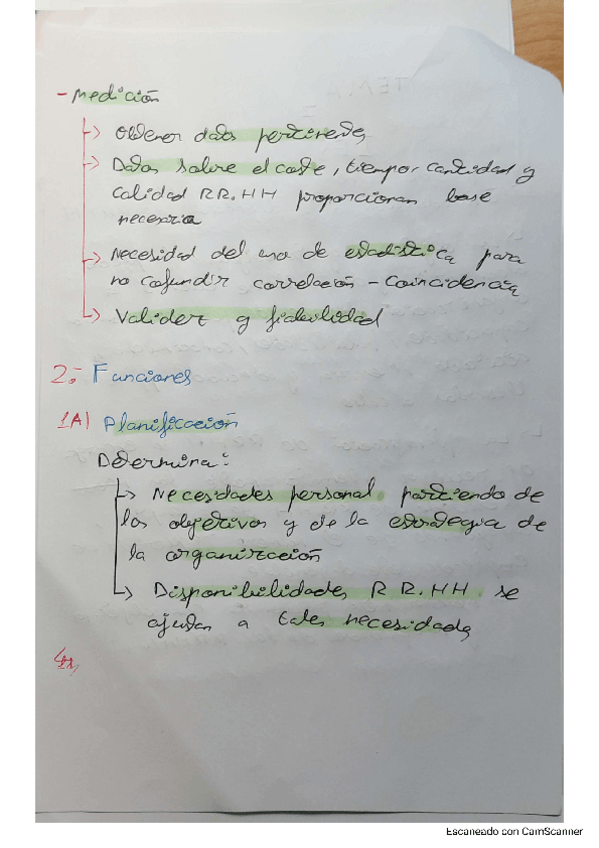 - Medición
→ Obtener datos pertinentes
→ Datos sobre el coste, tiempo, cantidad y
calidad RR.HH proporcionan base
necesaria
→ Necesidad del uso de estadística para
no cofundir correlación - coincidencia
→ Validez y fiabilidad
2: Funciones
1A) Planificación
Determina:
→ Necesidades personal partiendo de
los objetivos y de la estrategia de
la organización
→ Disponibilidades RR.HH. se
ajustan a tales necesidades
Escaneado con CamScanner